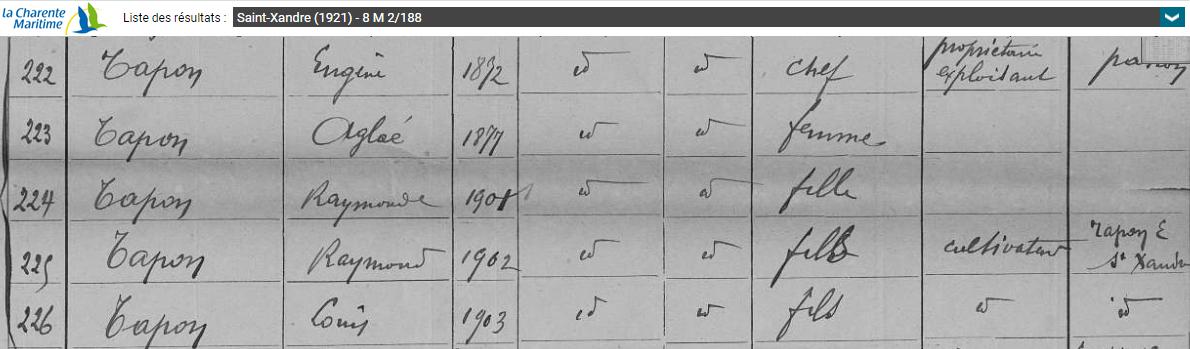 la Charente
Maritime
Liste des résultats : Saint-Xandre (1921) - 8 M 2/188
222 Tapon Eugène 1872 id id chef propriétaire exploitant patron
223 Tapon Aglaé 1877 id id femme
224 Tapon Raymonde 1901 id id fille
225 Tapon Raymond 1902 id id fils cultivateur Tapon E St Xandre
226 Tapon Louis 1903 id id fils id id